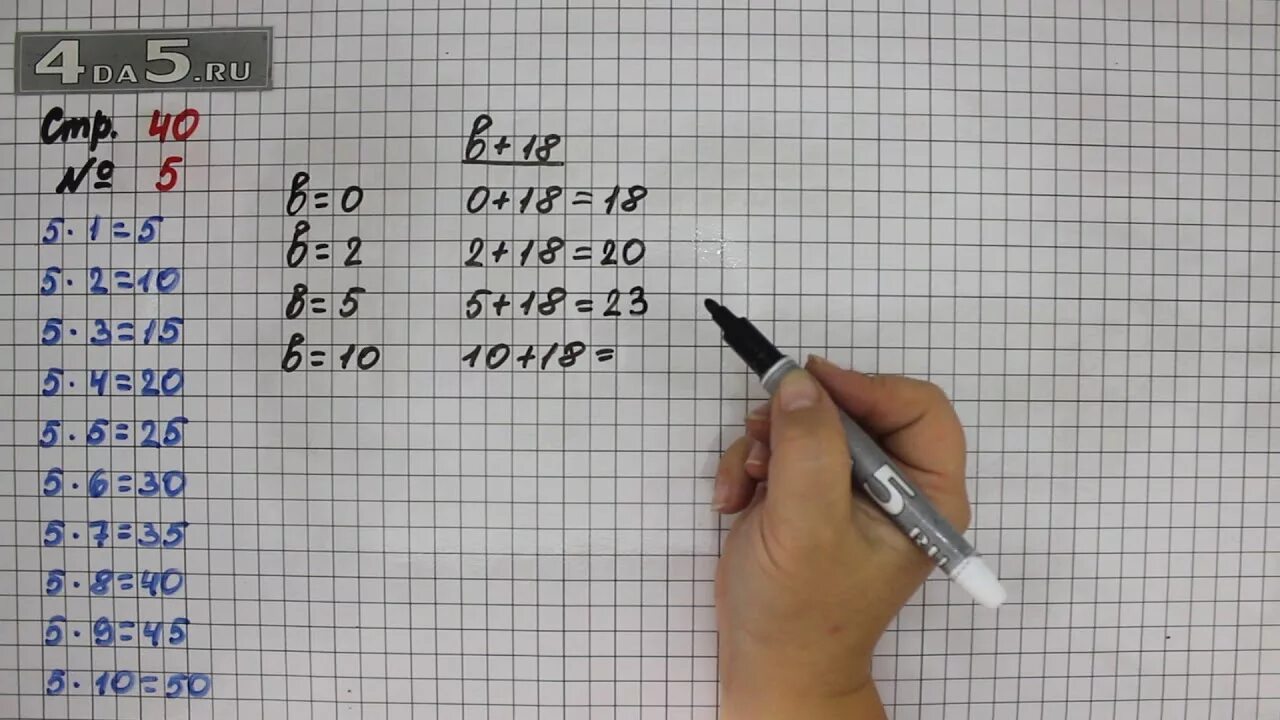 4DA5.RU
Стр. 40
№ 5
5 · 1 = 5
5 · 2 = 10
5 · 3 = 15
5 · 4 = 20
5 · 5 = 25
5 · 6 = 30
5 · 7 = 35
5 · 8 = 40
5 · 9 = 45
5 · 10 = 50
в + 18
в = 0 0 + 18 = 18
в = 2 2 + 18 = 20
в = 5 5 + 18 = 23
в = 10 10 + 18 =
5